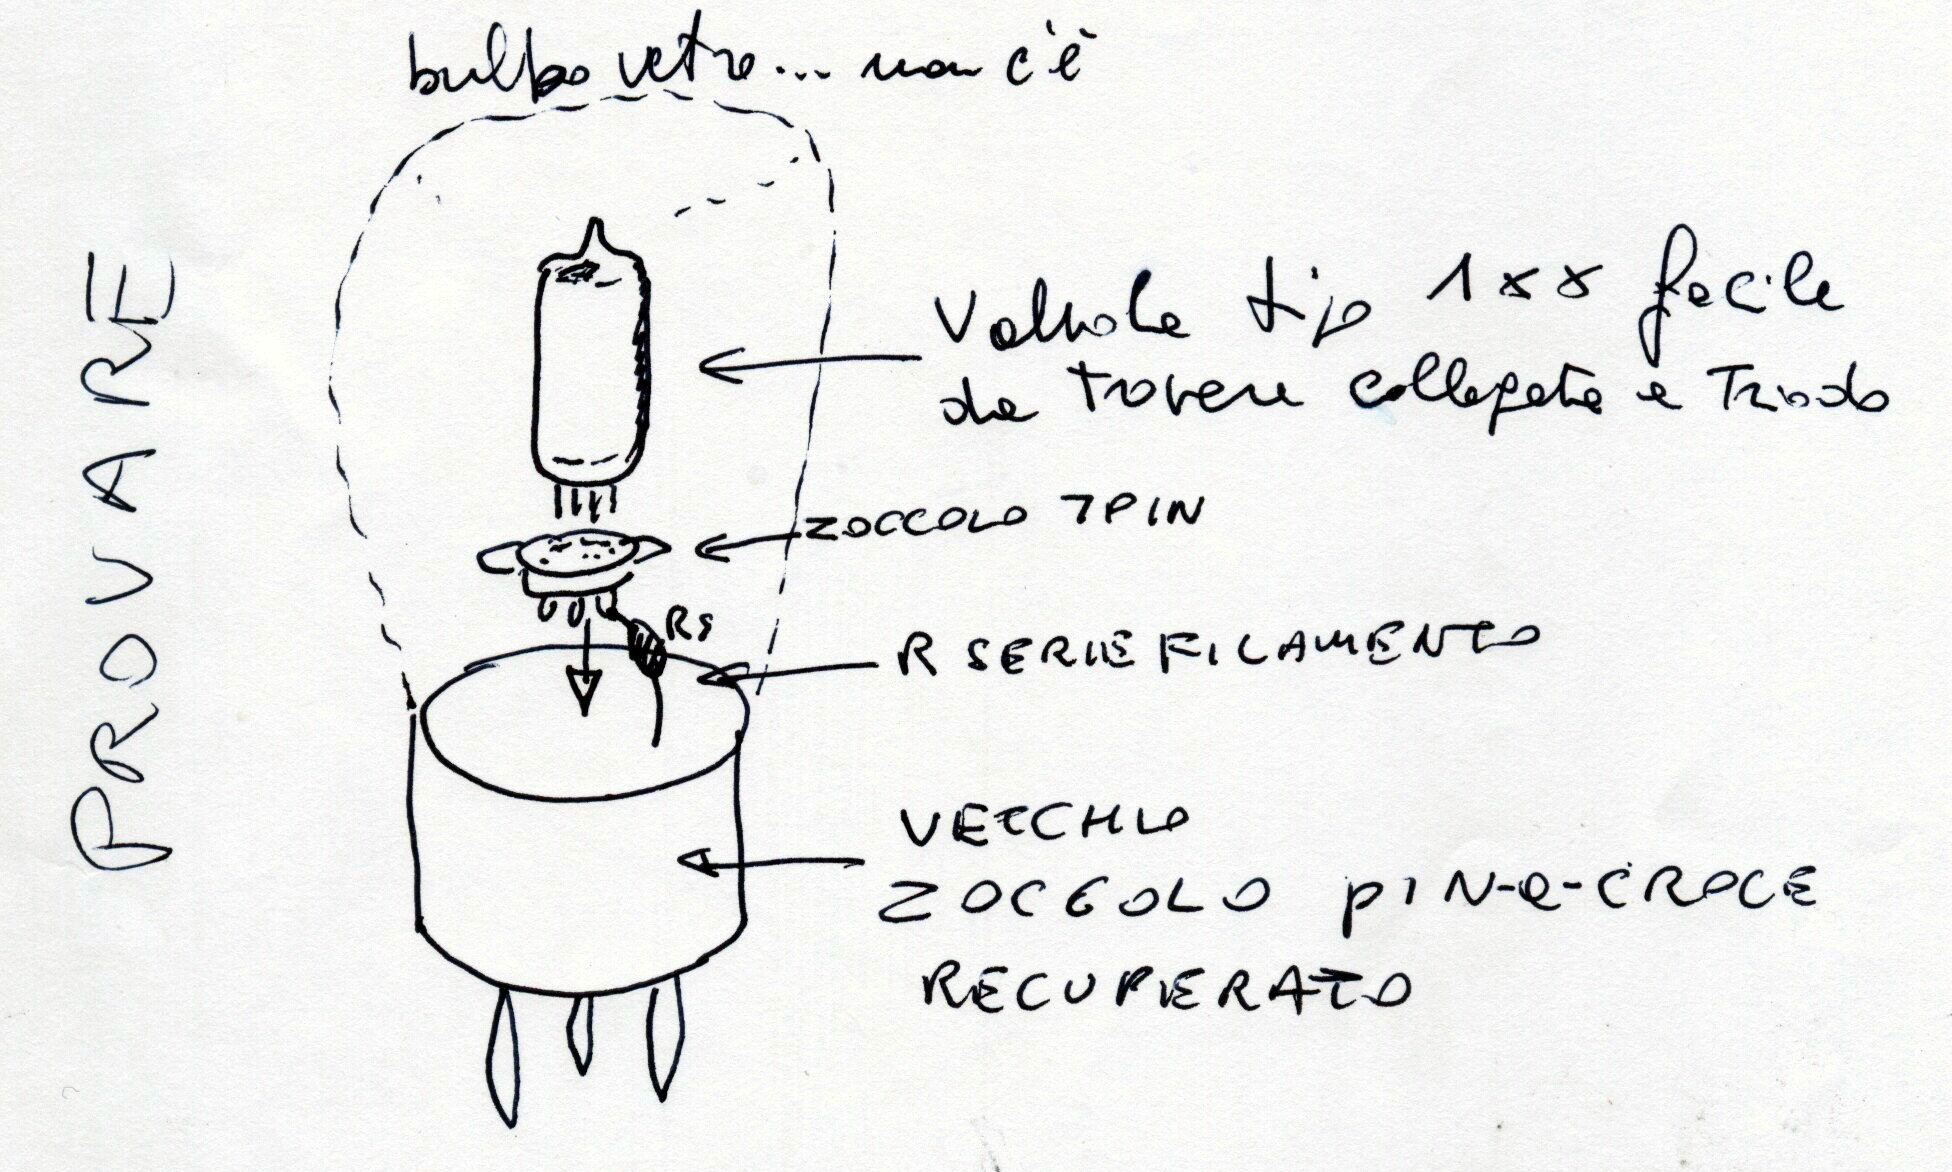 bulbo vetro... non c'è
PROVARE
Valvola tipo 1xx facile
da trovare collegata a Triodo
ZOCCOLO 7PIN
RS
R SERIE FILAMENTO
VECCHIO
ZOCCOLO PIN-a-CROCE
RECUPERATO